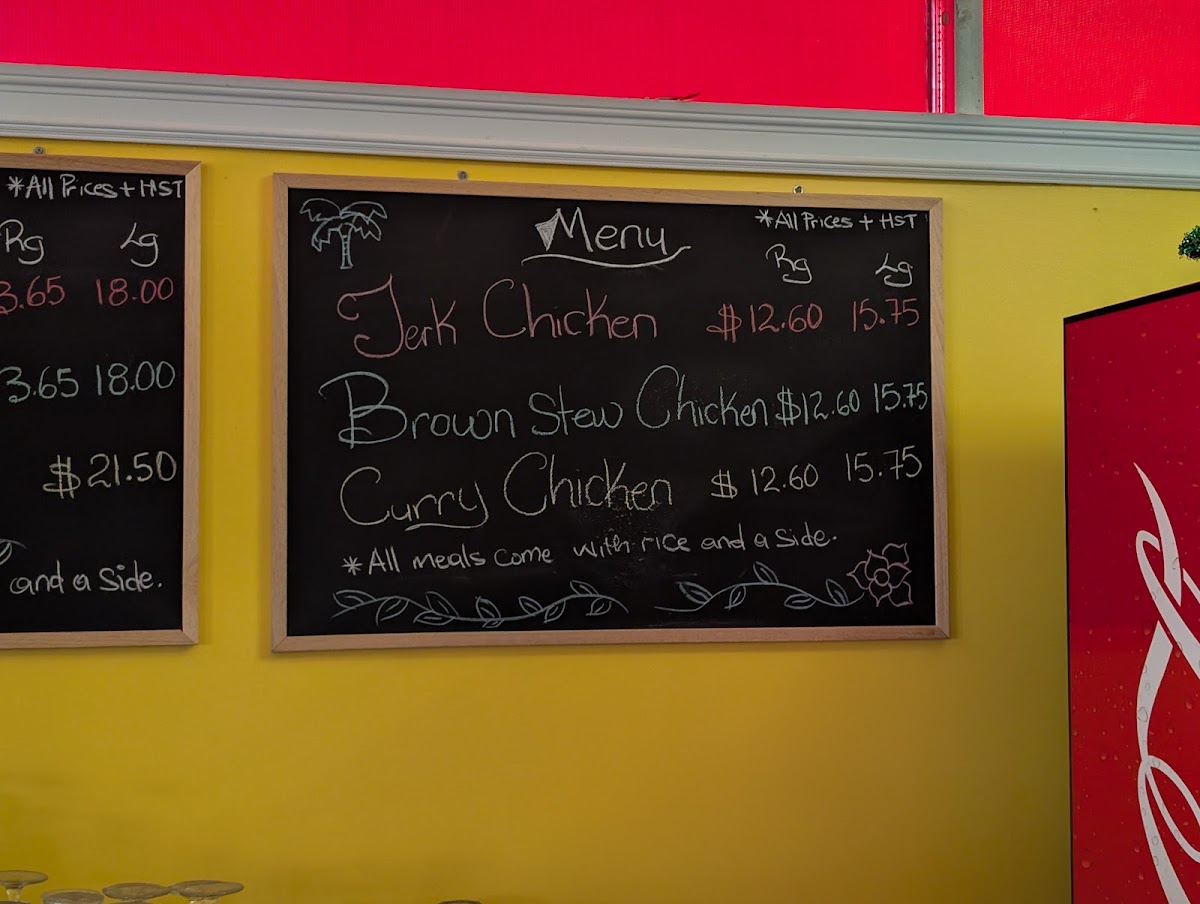 *All Prices + HST
Rg Lg
3.65 18.00
3.65 18.00
$21.50
and a side.
Menu
*All Prices + HST
Rg Lg
Jerk Chicken $12.60 15.75
Brown Stew Chicken $12.60 15.75
Curry Chicken $12.60 15.75
*All meals come with rice and a side.